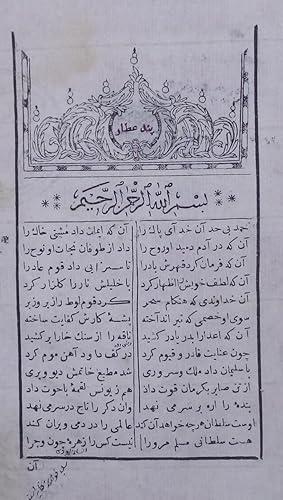 پند عطار
بسم الله الرحمن الرحیم
حمد بی حد آن خدای پاک را آن که ایمان داد مشتی خاک را
آن که در آدم دمید او روح را داد از طوفان نجات او نوح را
آن که فرمان کرد قهرش باد را تا سزایی داد قوم عاد را
آن که لطف خویش را اظهار کرد با خلیلش نار را گلزار کرد
آن خداوندی که هنگام سحر کرد قوم لوط را زیر و زبر
سوی او خصمی که تیر انداخته پشهٔ کارش کفایت ساخته
آن که اعدا را بدریا در کشید ناقه را از سنگ خارا بر کشید
چون عنایت قادر و قیوم کرد در کف داود آهن موم کرد
با سلیمان داد ملک و سروری شد مطیع خاتمش دیو و پری
از تن صابر بکرمان قوت داد هم ز یونس لقمهٔ با حوت داد
بندهٔ را اره بر سر می نهد وان دگر را تاج بر سر می نهد
اوست سلطان هرچه خواهد آن کند عالمی را در دمی ویران کند
هست سلطانی مسلم مر ورا نیست کس را زهرهٔ چون و چرا
آن